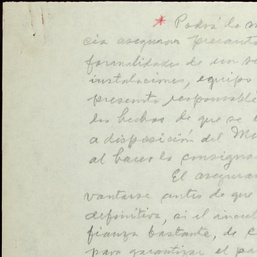 * Podrá la m
cia asegurar precauto
formalidades de un se
instalaciones, equipo
presunto responsable
los hechos de que se t
a disposición del Mi
al hacer la consigna
El asegura
vantarse antes de que
definitiva, si el incul
fianza bastante, de c
para garantizar el pa